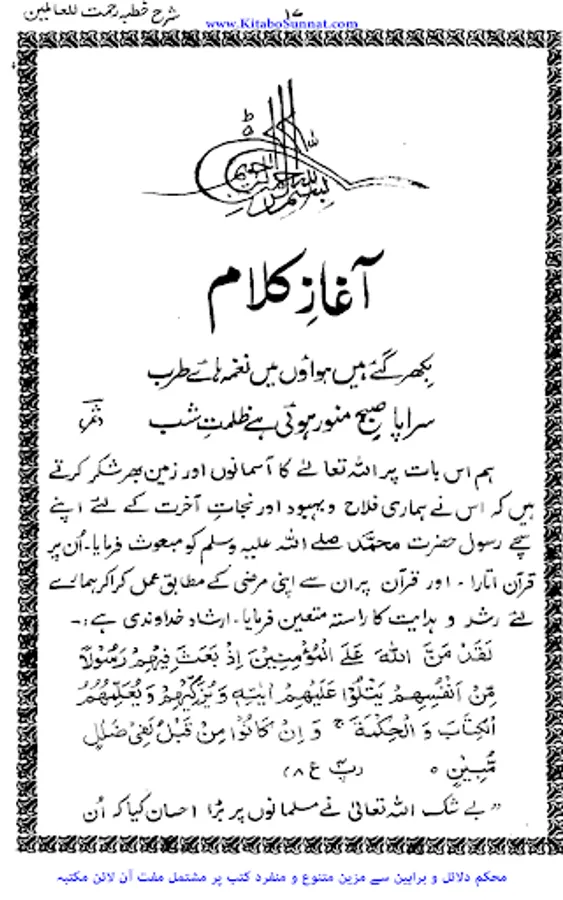 شرح خطبہ رحمت للعالمین
۱۷
www.KitaboSunnat.com
بسم اللہ الرحمن الرحیم
آغازِ کلام
بکھر گئے ہیں ہواؤں میں نغمہ ہائے طرب
سراپا صبح منور ہوئی ہے ظلمتِ شب (ثمر)
ہم اس بات پر اللہ تعالےٰ کا آسمانوں اور زمین بھر شکر کرتے
ہیں کہ اس نے ہماری فلاح و بہبود اور نجاتِ آخرت کے لئے اپنے
سچے رسول حضرت محمد صلے اللہ علیہ وسلم کو مبعوث فرمایا۔ اُن پر
قرآن اتارا۔ اور قرآن پر ان سے اپنی مرضی کے مطابق عمل کرا کر ہمارے
لئے رشد و ہدایت کا راستہ متعین فرمایا۔ ارشاد خداوندی ہے:۔
لَقَدْ مَنَّ اللّٰهُ عَلَے الْمُؤْمِنِیْنَ اِذْ بَعَثَ فِیْهِمْ رَسُوْلًا
مِّنْ اَنْفُسِهِمْ یَتْلُوْا عَلَیْهِمْ اٰیٰتِهٖ وَیُزَكِّیْهِمْ وَیُعَلِّمُهُمُ
الْكِتَابَ وَ الْحِكْمَةَ ج وَ اِنْ كَانُوْا مِنْ قَبْلُ لَفِیْ ضَلٰلٍ
مُّبِیْنٍ ○ (پ ۴ ع ۸)
”بے شک اللہ تعالیٰ نے مسلمانوں پر بڑا احسان کیا کہ اُن
محکم دلائل و براہین سے مزین متنوع و منفرد کتب پر مشتمل مفت آن لائن مکتبہ